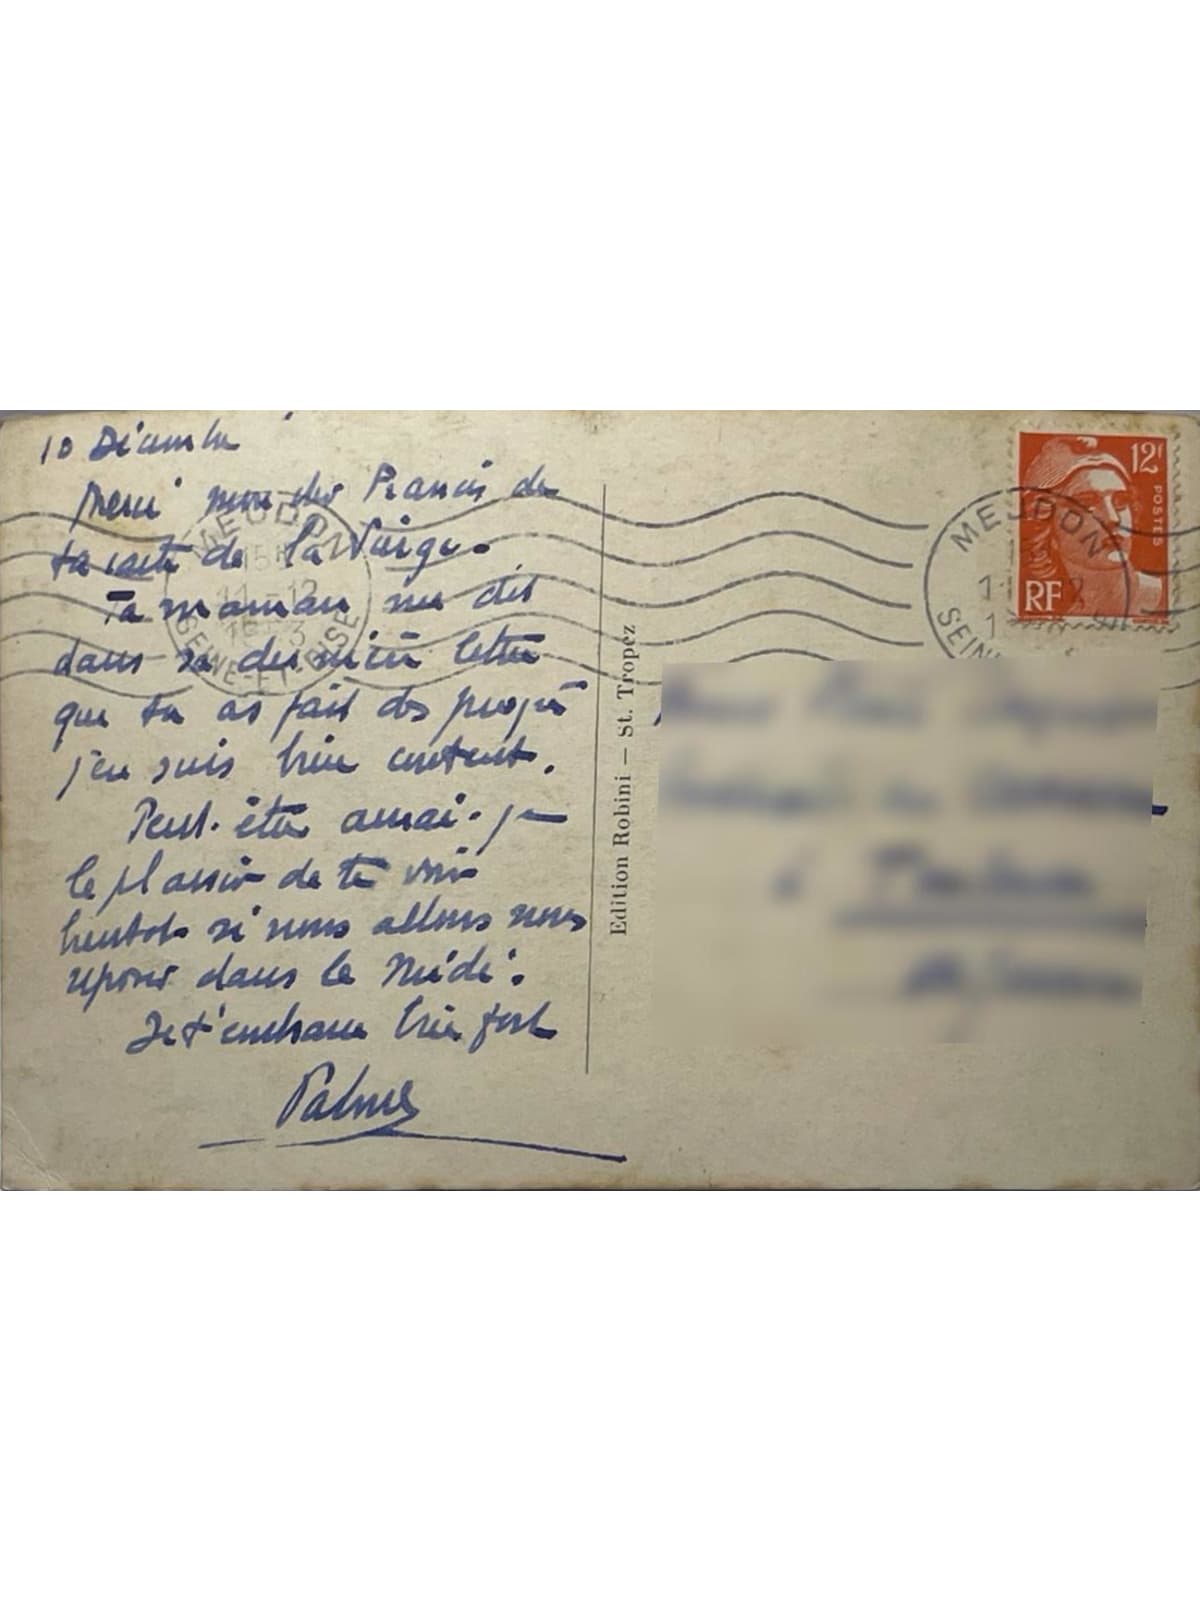 10 Décembre
Merci mon cher Francis de
ta carte de la Vierge.
Ta maman me dit
dans sa dernière lettre
que tu as fait des progrès
j'en suis bien content.
Peut-être aurai-je
le plaisir de te voir
bientot si nous allons nous
reposer dans le Midi.
Je t'embrasse bien fort
MEUDON
15H
11-12
1953
SEINE-ET-OISE
Edition Robini – St. Tropez
12F
POSTES
RF
MEUDON
SEINE